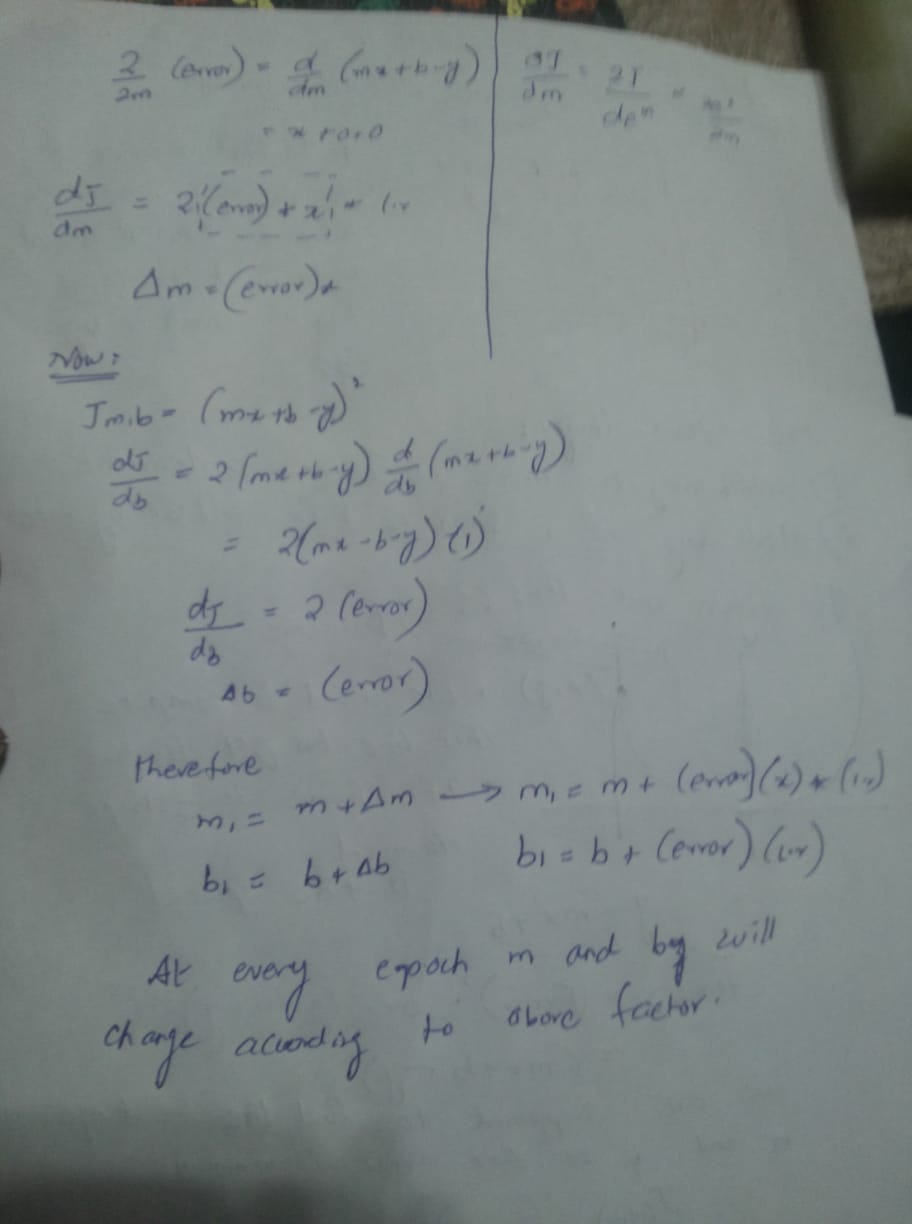 ∂/∂m (error) = d/dm (mx+b-y)
= x+0+0
dJ/dm = 2(error) * x * l.r
Δm = (error)x
Now:
Jm,b = (mx+b-y)²
dJ/db = 2(mx+b-y) d/db (mx+b-y)
= 2(mx-b-y)(1)
dJ/db = 2(error)
Δb = (error)
therefore
m₁ = m+Δm → m₁ = m + (error)(x) * (l.r)
b₁ = b+Δb b₁ = b + (error)(l.r)
At every epoch m and by will
change acuording to above factor.